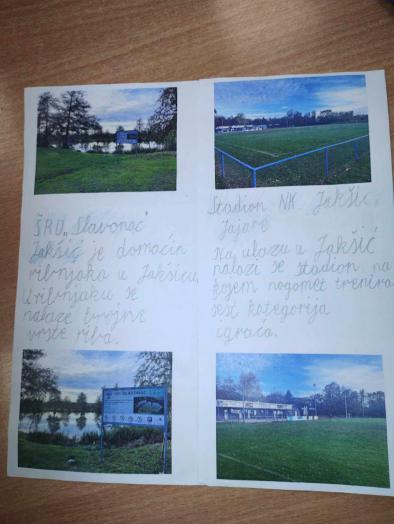 ŠRD „Slavonac“
Jakšić je domaćin
ribnjaka u Jakšicu.
U ribnjaku se
nalaze brojne
vrste riba.
SLAVONAC
Stadion NK Jakšić,
Jajare
Na ulazu u Jakšić
nalazi se stadion na
kojem nogomet trenira
šest kategorija
igrača.